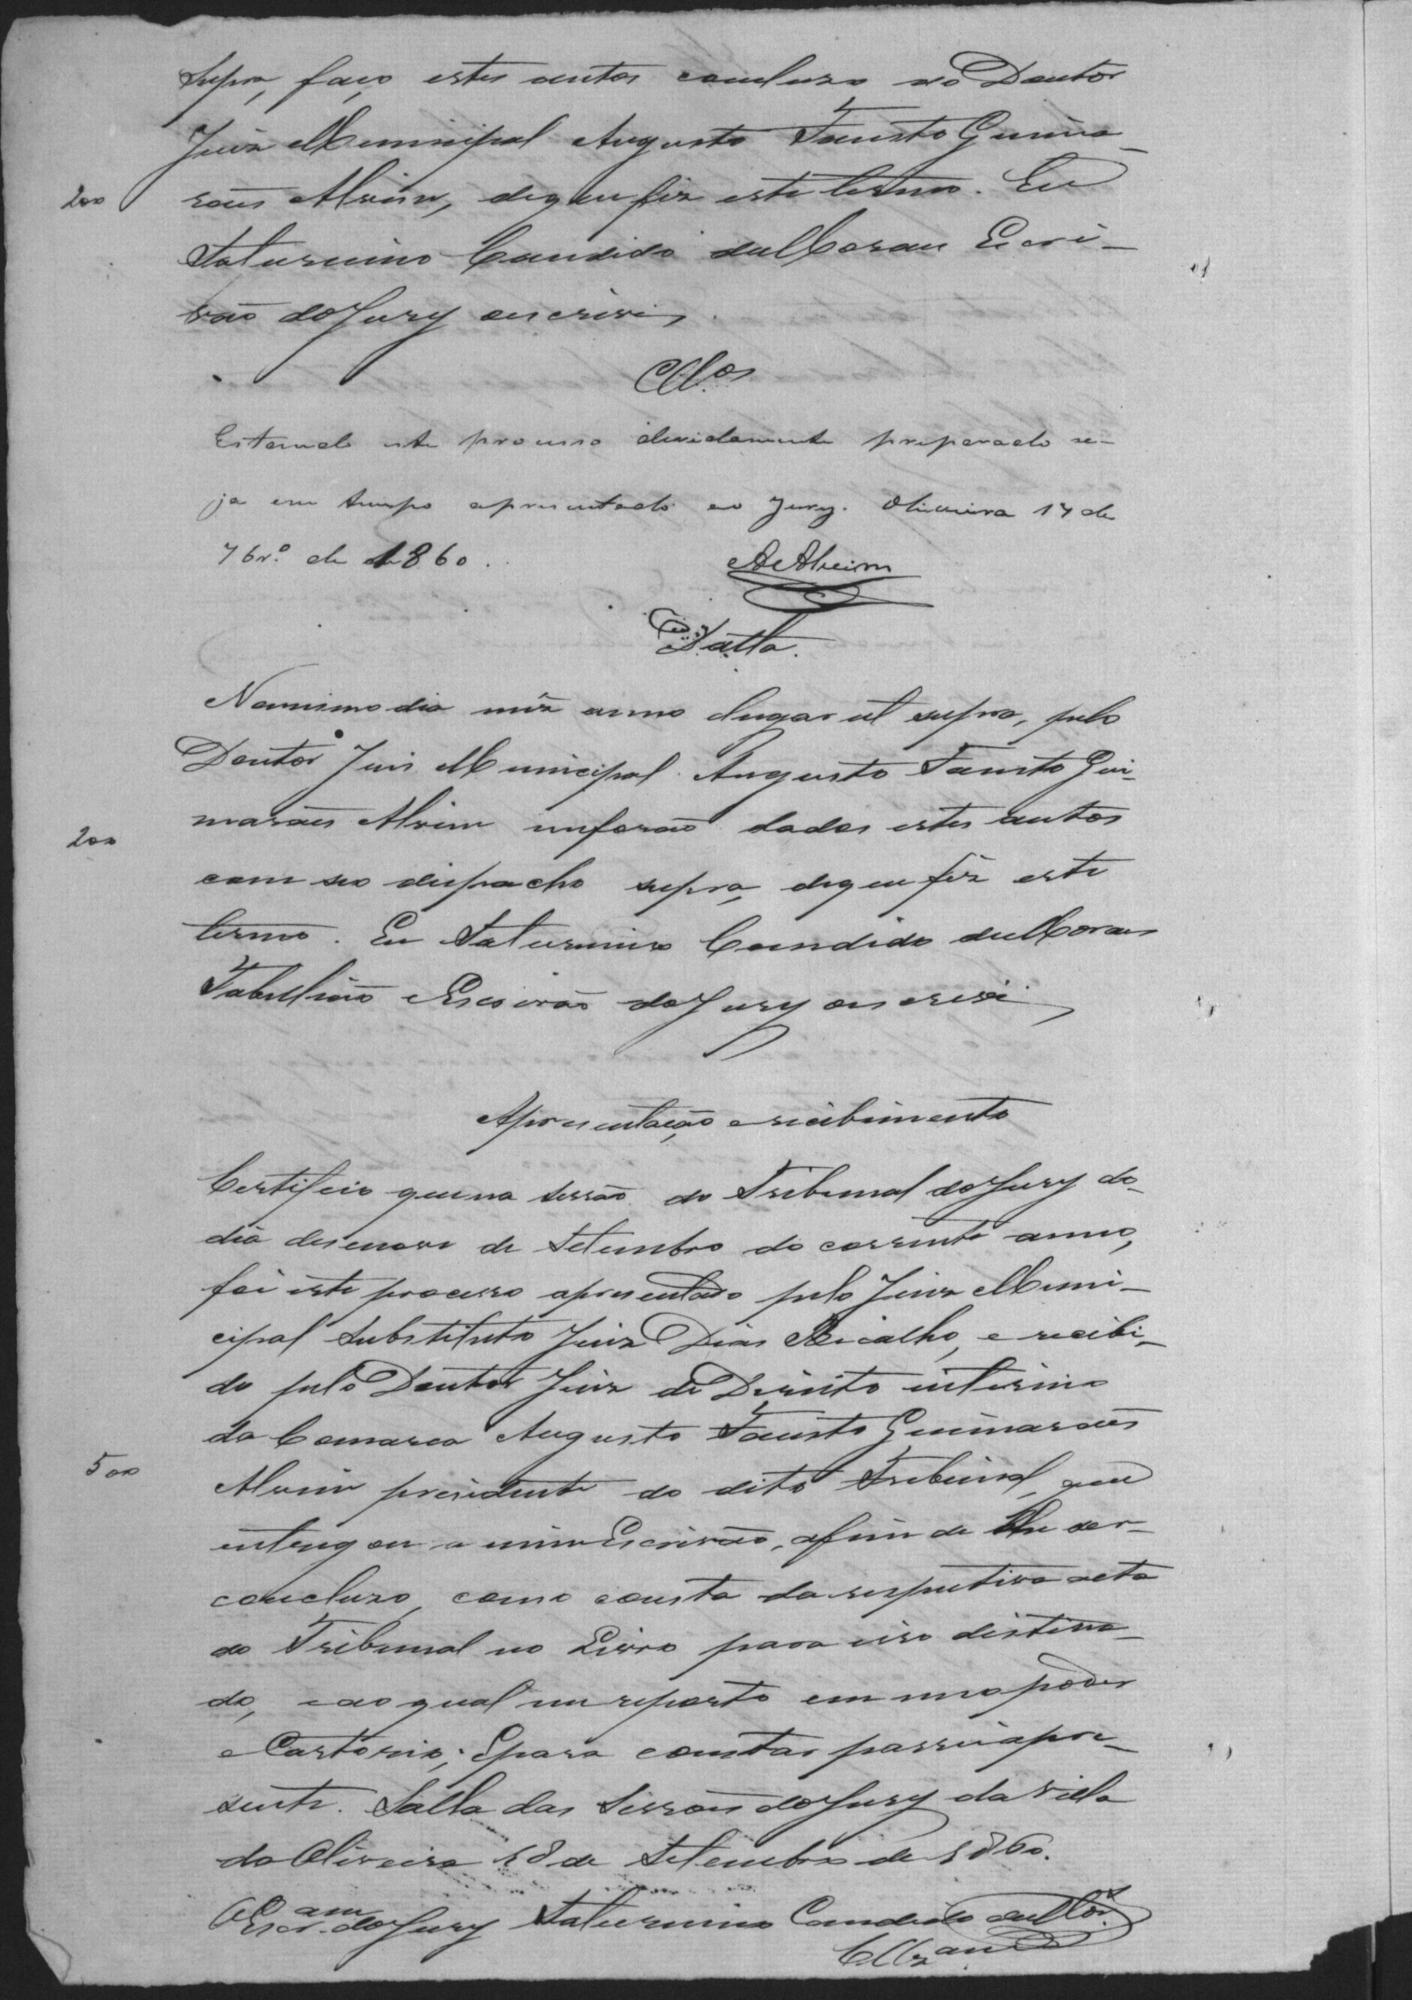 supra, faço estes autos concluzo ao Doutor
Juiz Municipal Augusto Fausto Guima_
200 raes Alvim, de que fiz este termo. Eu
Saturnino Candido de Moraes Escri_
vão do Jury o escrivi
Cl.os
Estando este processo devidamente preparado se-
ja em tempo apresentado ao Jury. Oliveira 17 de
7br.o de 1860.
A Alvim
Datta.
No mesmo dia mêz anno elugar ut supra, pelo
Doutor Juis Municipal Augusto Fausto Gui_
marães Alvim me forão dados estes autos
200
com seo dispacho supra, de que fiz este
termo. Eu Saturnino Candido de Moraes
Tabellião e Escrivão do Jury o escrivi
Apresentação e recibimento
Certifico que na sessão do Tribunal do Jury do_
dia desenove de Setembro do corrente anno,
foi este processo apresentado pelo Juiz Muni_
cipal Substituto Juiz Dias Bicalho, e recibi_
do pelo Doutor Juiz de Direito interino
da Comarca Augusto Fausto Guimarães
500 Alvim presidente do dito Tribunal, que
entregou a mim Escrivão, afim de lhe ser_
concluzo, como consta da respectiva acta
do Tribunal no Livro para isso distina_
do, e ao qual me reporto em meo poder
e Cartorio; E para constar passei a pre_
sente. Salla das Sessões do Jury da Villa
da Oliveira 18 de Setembro de 1860.
O Escr.am do Jury Saturnino Candido de Mor.